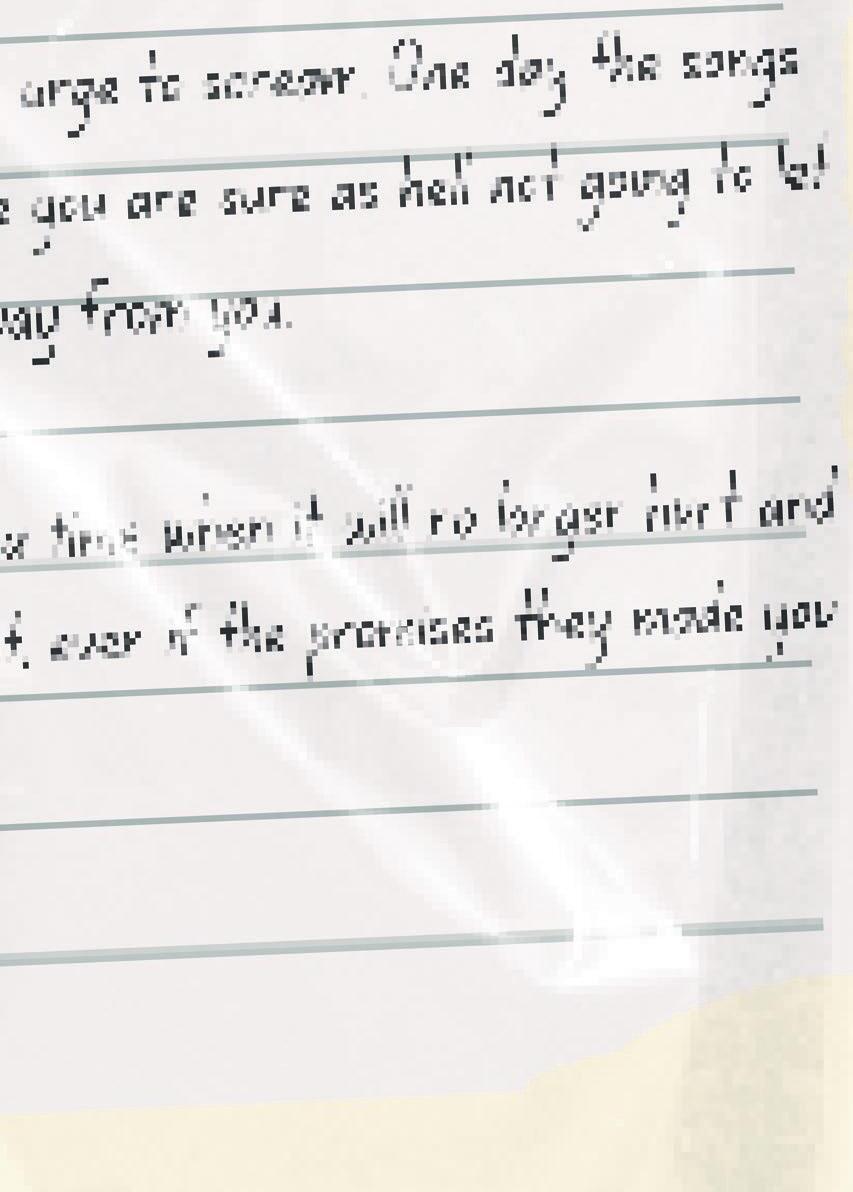 urge to scream. One day the songs
you are sure as hell not going to let
from you.
time when it will no longer hurt and
even if the promises they made you